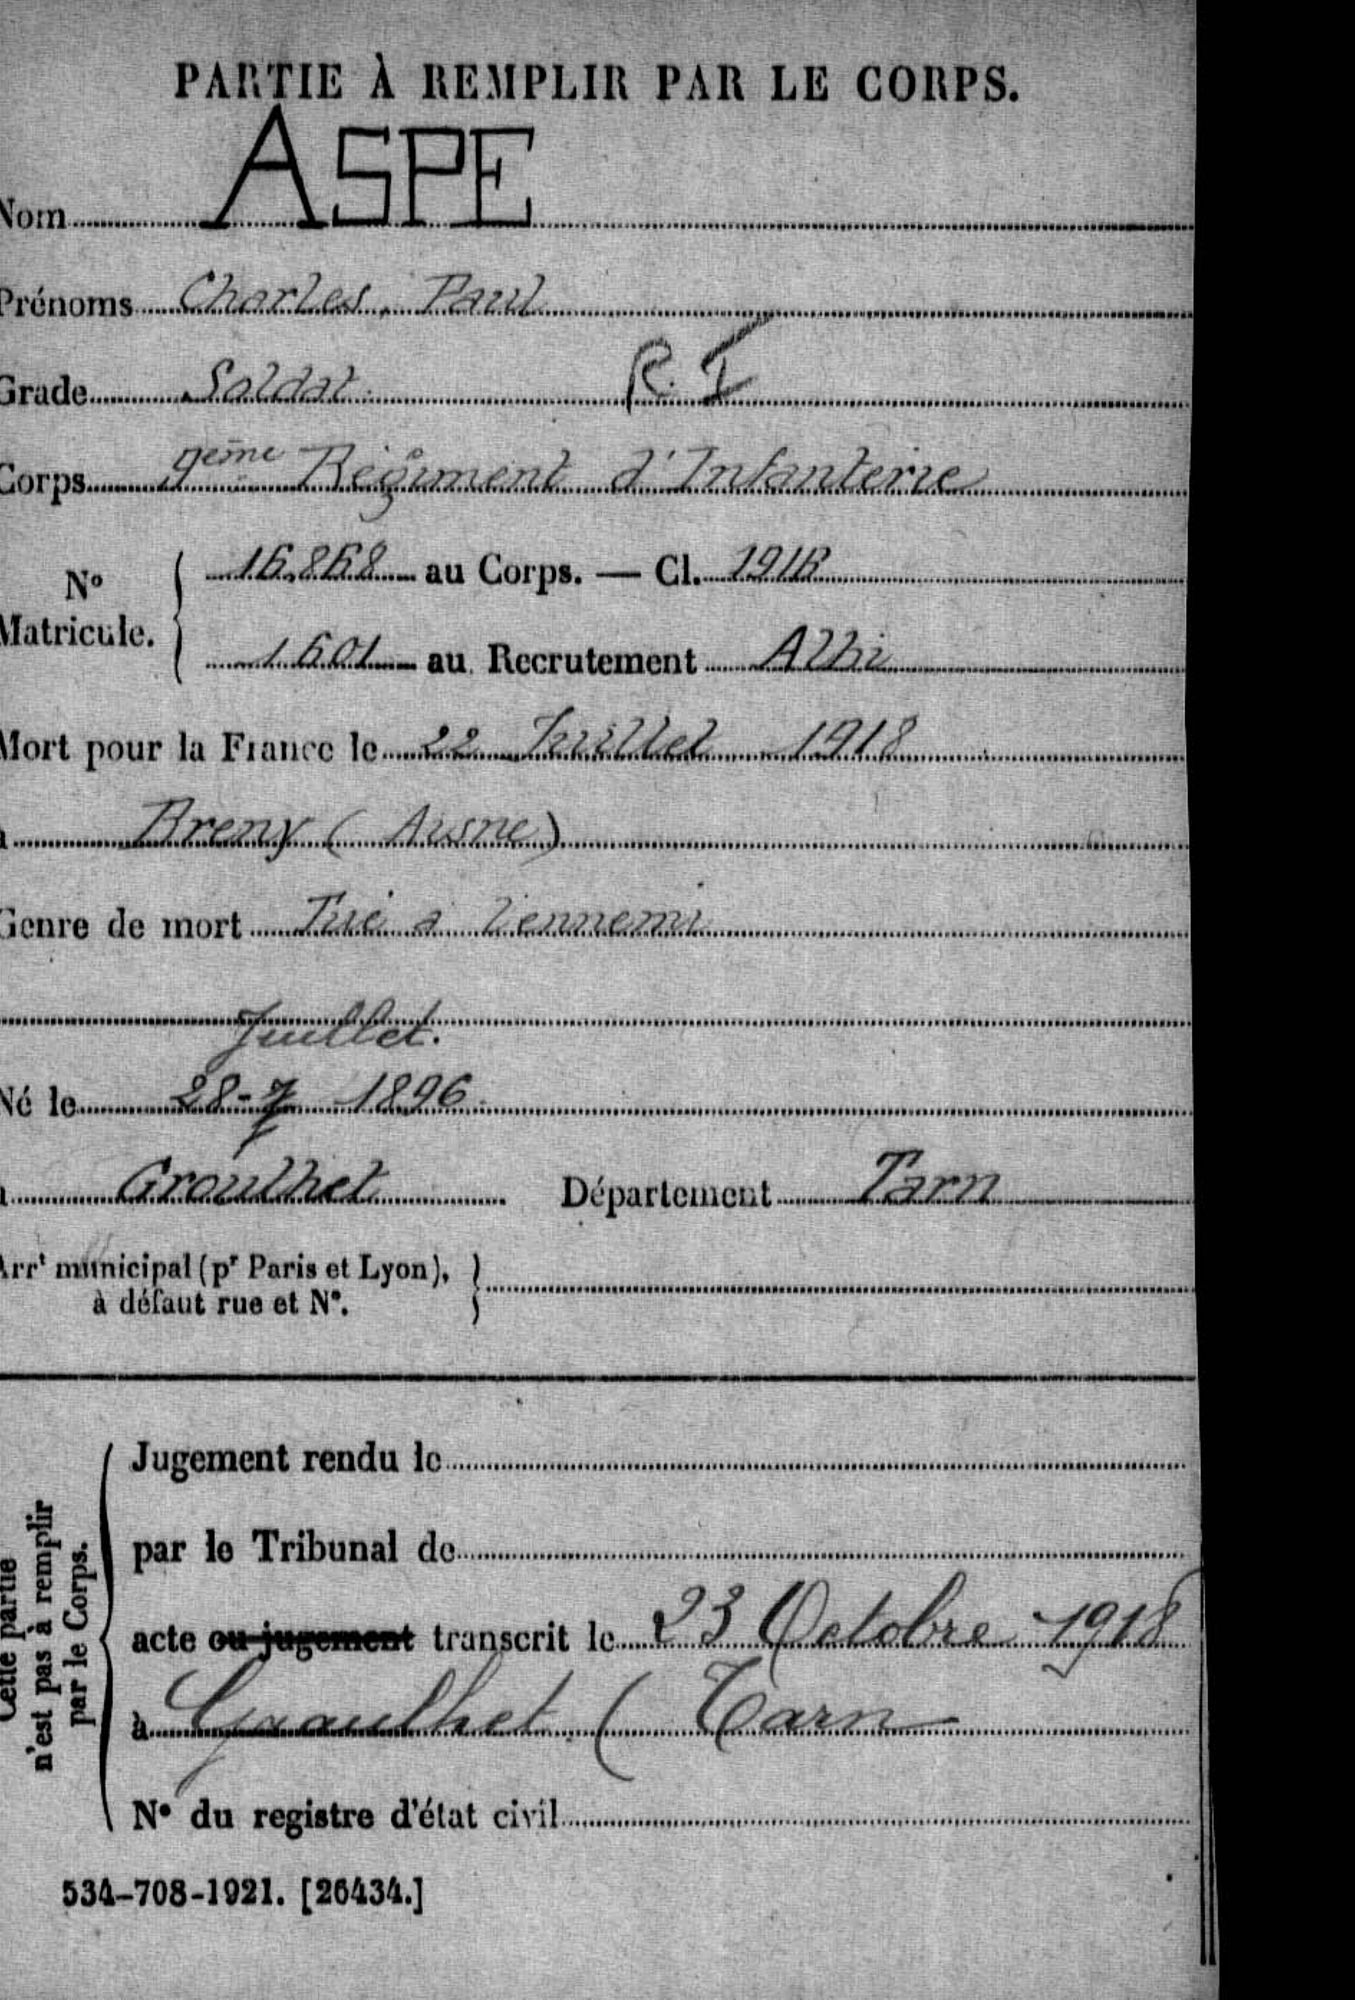 PARTIE À REMPLIR PAR LE CORPS.
Nom ASPE
Prénoms Charles, Paul
Grade Soldat R.I
Corps 9eme Régiment d'Infanterie
N° Matricule. 16.868 au Corps. — Cl. 1916
1601 au Recrutement Albi
Mort pour la France le 22 Juillet 1918
à Breny (Aisne)
Genre de mort Tué à l'ennemi
Juillet.
Né le 28-7 1896
à Graulhet Département Tarn
Arrt municipal (pr Paris et Lyon),
à défaut rue et N°.
Cette partie
n'est pas à remplir
par le Corps.
Jugement rendu le
par le Tribunal de
acte ou jugement transcrit le 23 Octobre 1918
à Graulhet (Tarn
N° du registre d'état civil
534-708-1921. [26434.]